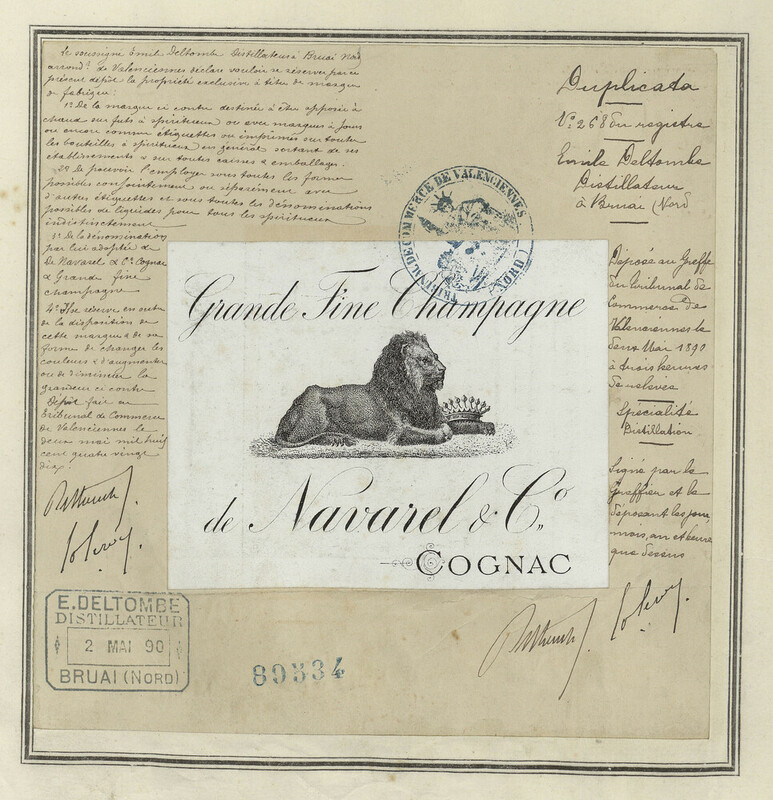 Le soussigné Émile Deltombe Distillateur à Bruai Nord
arrondt de Valenciennes déclare vouloir se réserver par ce
présent dépôt la propriété exclusive à titre de marque
de fabrique:
1º De la marque ci contre destinée à être apposée à
chaud sur fûts à spiritueux ou avec marques à jours
ou encore comme étiquettes ou imprimés sur toutes
les bouteilles à spiritueux en général sortant de ses
établissements & sur toutes caisses & emballages.
2º De pouvoir l'employer sous toutes les formes
possibles conjointement ou séparément avec
d'autres étiquettes et sous toutes les dénominations
possibles de liquides pour tous les spiritueux
indistinctement
3º De la dénomination
par lui adoptée de
De Navarel & Cº Cognac
& Grande fine
champagne
4º Se réserve en outre
de la disposition de
cette marque & de sa
forme de changer les
couleurs & d'augmenter
ou de diminuer la
grandeur ci contre
Dépôt fait au
Tribunal de Commerce
de Valenciennes le
deux mai mil huit
cent quatre vingt
dix
E. DELTOMBE
DISTILLATEUR
2 MAI 90
BRUAI (NORD)
TRIBUN. DE COMMERCE DE VALENCIENNES
(NORD)
Grande Fine Champagne
de Navarel & Cº
COGNAC
89334
Duplicata
Nº 268 du registre
Emile Deltombe
Distillateur
à Bruai (Nord
Déposé au Greffe
du Tribunal de
Commerce De
Valenciennes le
deux Mai 1890
à trois heures
de relevée
Spécialité
Distillation
Signé par le
Greffier et le
déposant les jour,
mois, an et heure
que dessus